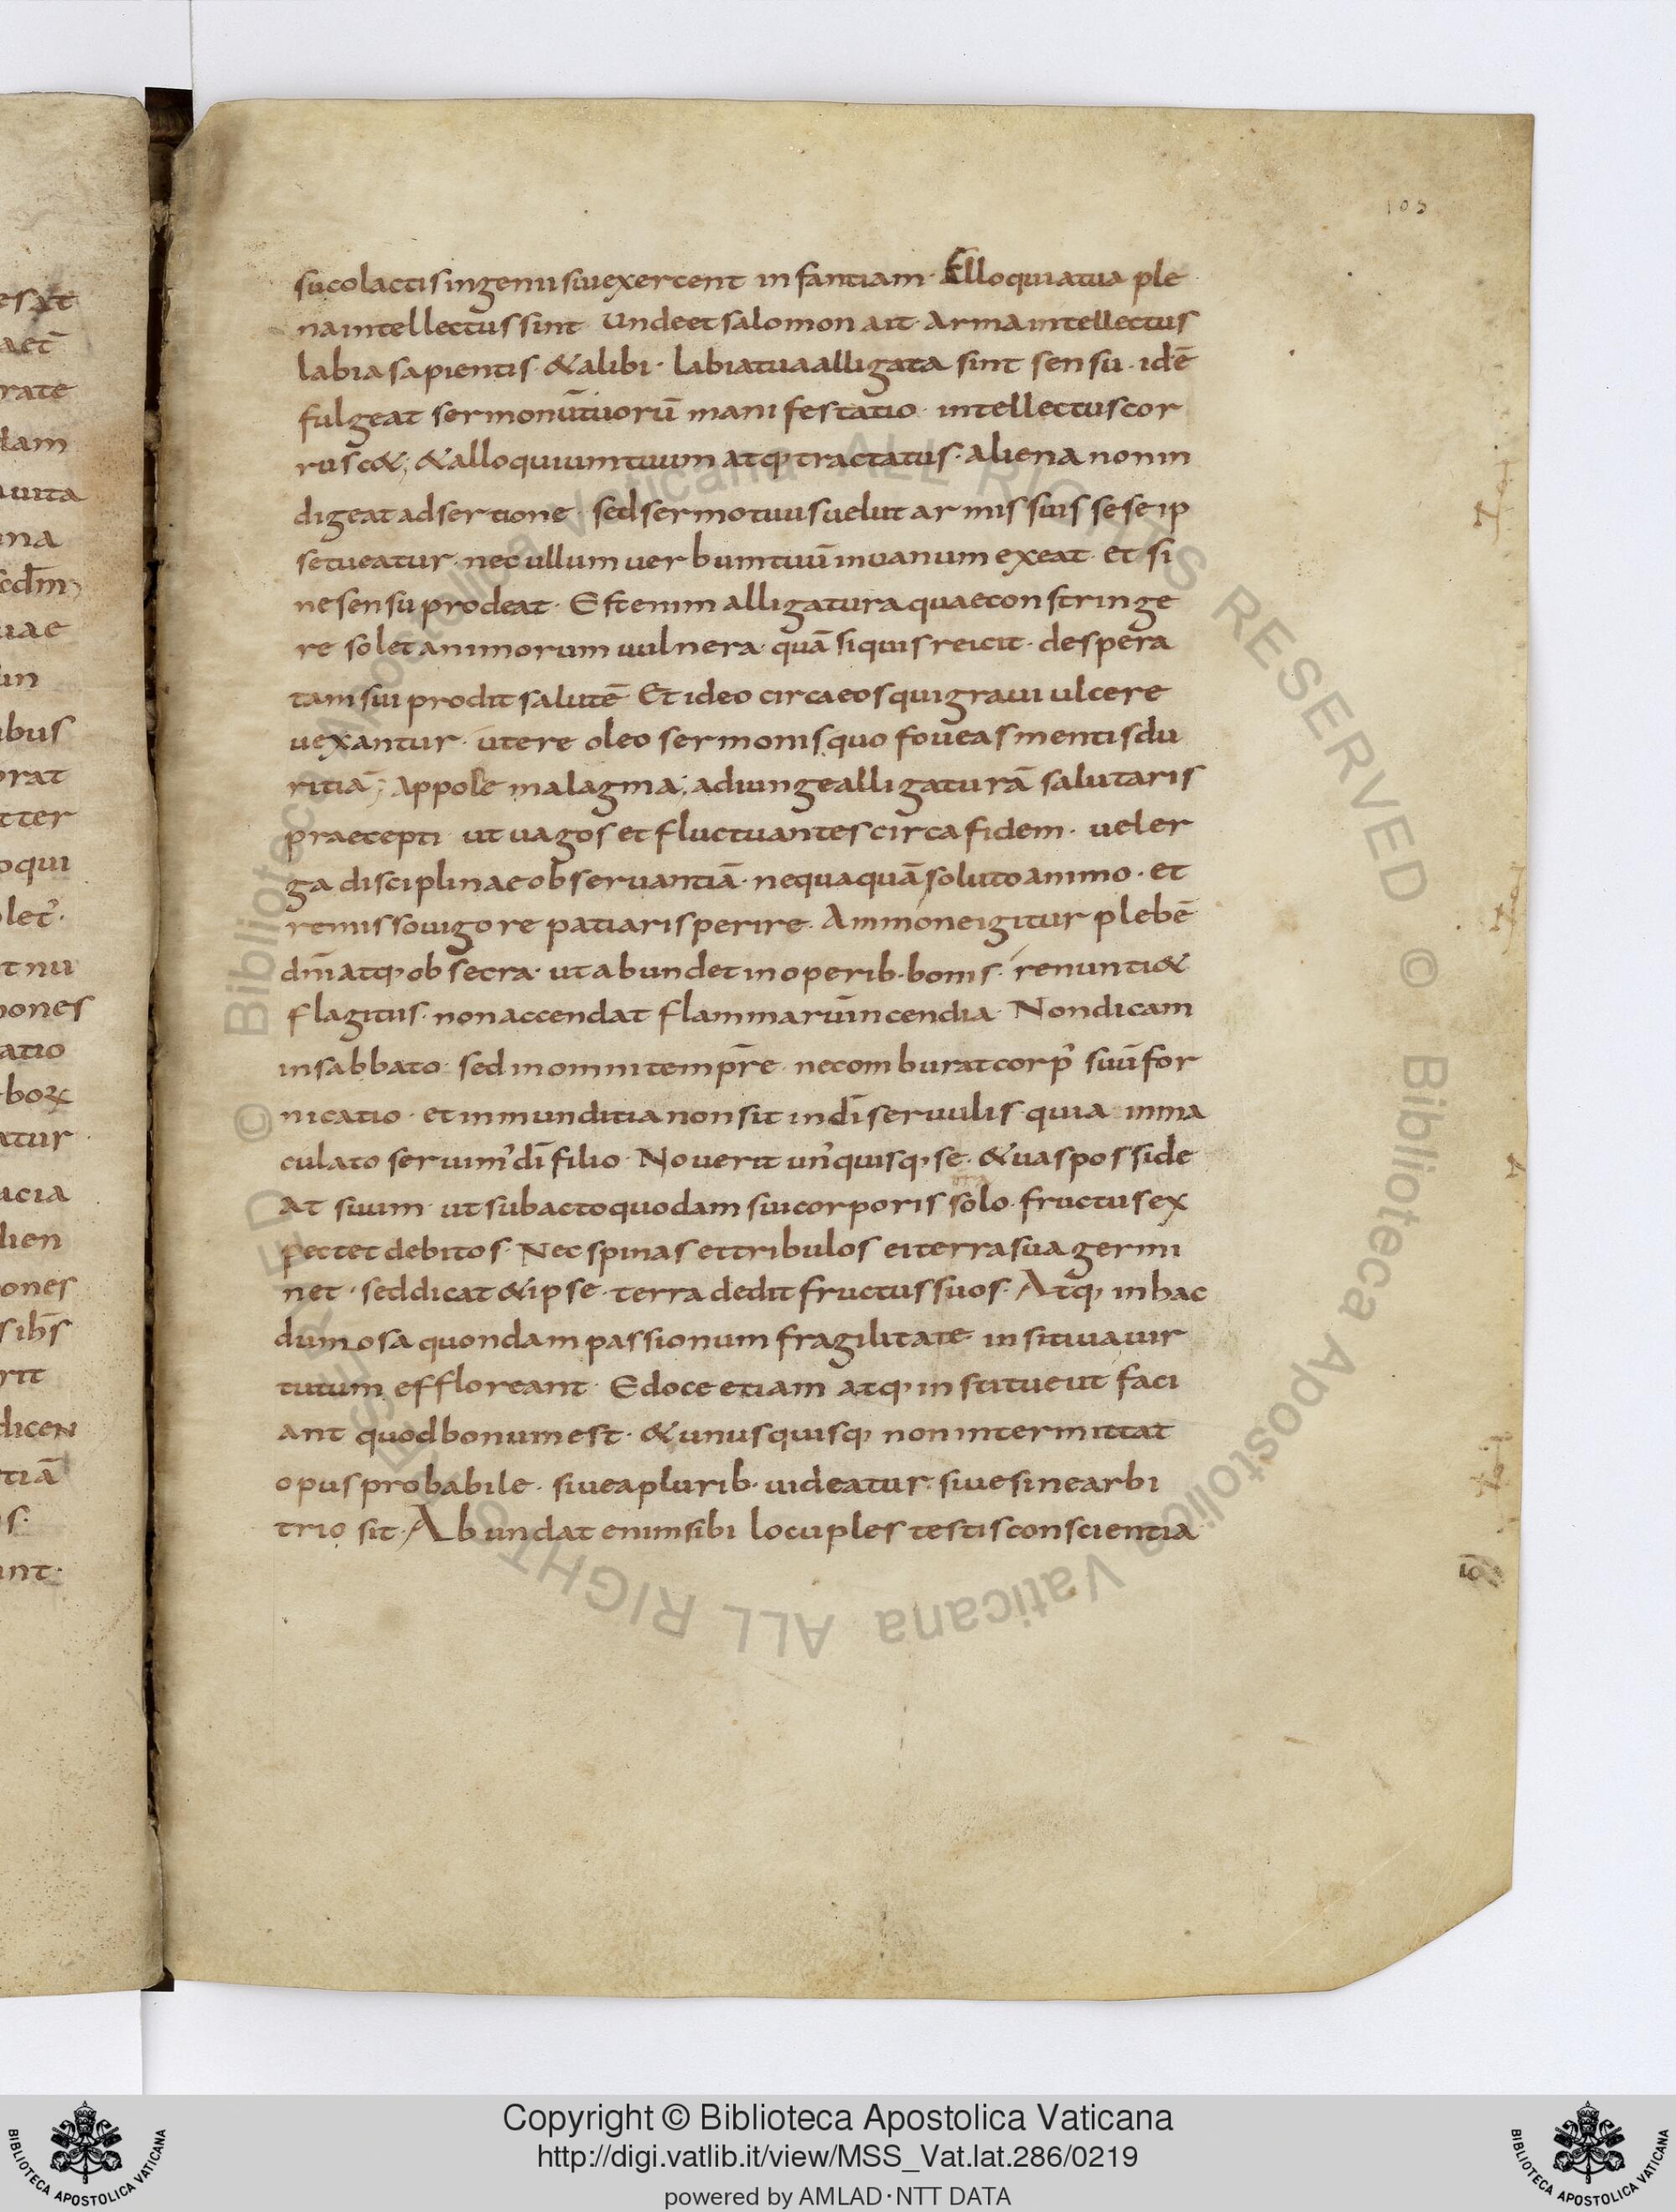 105
suco lactis ingenii sui exercent infantiam· Elloquia tua ple
na intellectus sint· Unde et salomon ait· Arma intellectus
labia sapientis· & alibi· labia tua alligata sint sensu· id ē
fulgeat sermonū tuorū manifestatio· intellectus cor
rusc&; & alloquium tuum atq; tractatus· aliena non in
digeat adsertione· sed sermo tuus uelut armis suis sese ip
se tueatur· nec ullum uerbum tuū in uanum exeat· et si
ne sensu prodeat· Est enim alligatura quae constringe
re solet animorum uulnera· quā si quis reicit· despera
tam sui prodit salutē· Et ideo circa eos qui graui ulcere
uexantur· utere oleo sermonis quo foueas mentis du
ritiā; Appone malagma; adiunge alligaturā salutaris
praecepti· ut uagos et fluctuantes circa fidem· uel er
ga disciplinae obseruantiā· nequaquā soluto animo· et
remisso uigore patiaris perire· Ammone igitur plebē
dn̄i atq; obsecra· ut abundet in operib· bonis· renunti&
flagitiis· non accendat flammarū incendia· Non dicam
in sabbato· sed in omni temp̄re· ne comburat corp' suū for
nicatio· et inmunditia non sit in dī seruulis· quia inma
culato seruim' dī filio· Nouerit un'quisq; se· & uas posside
at suum· ut subacto quodam sui corporis solo· fructus ex
pectet debitos· Nec spinas et tribulos ei terra sua germi
net· sed dicat & ipse· terra dedit fructus suos· Atq; in hac
dumosa quondam passionum fragilitate insitiua uir
tutum effloreant· Edoce etiam atq; institue ut faci
ant quod bonum est· & unusquisq; non intermittat
opus probabile· siue a plurib· uideatur· siue sine arbi
trio sit· Abundat enim sibi locuples testis conscientia
Copyright © Biblioteca Apostolica Vaticana
http://digi.vatlib.it/view/MSS_Vat.lat.286/0219
powered by AMLAD·NTT DATA